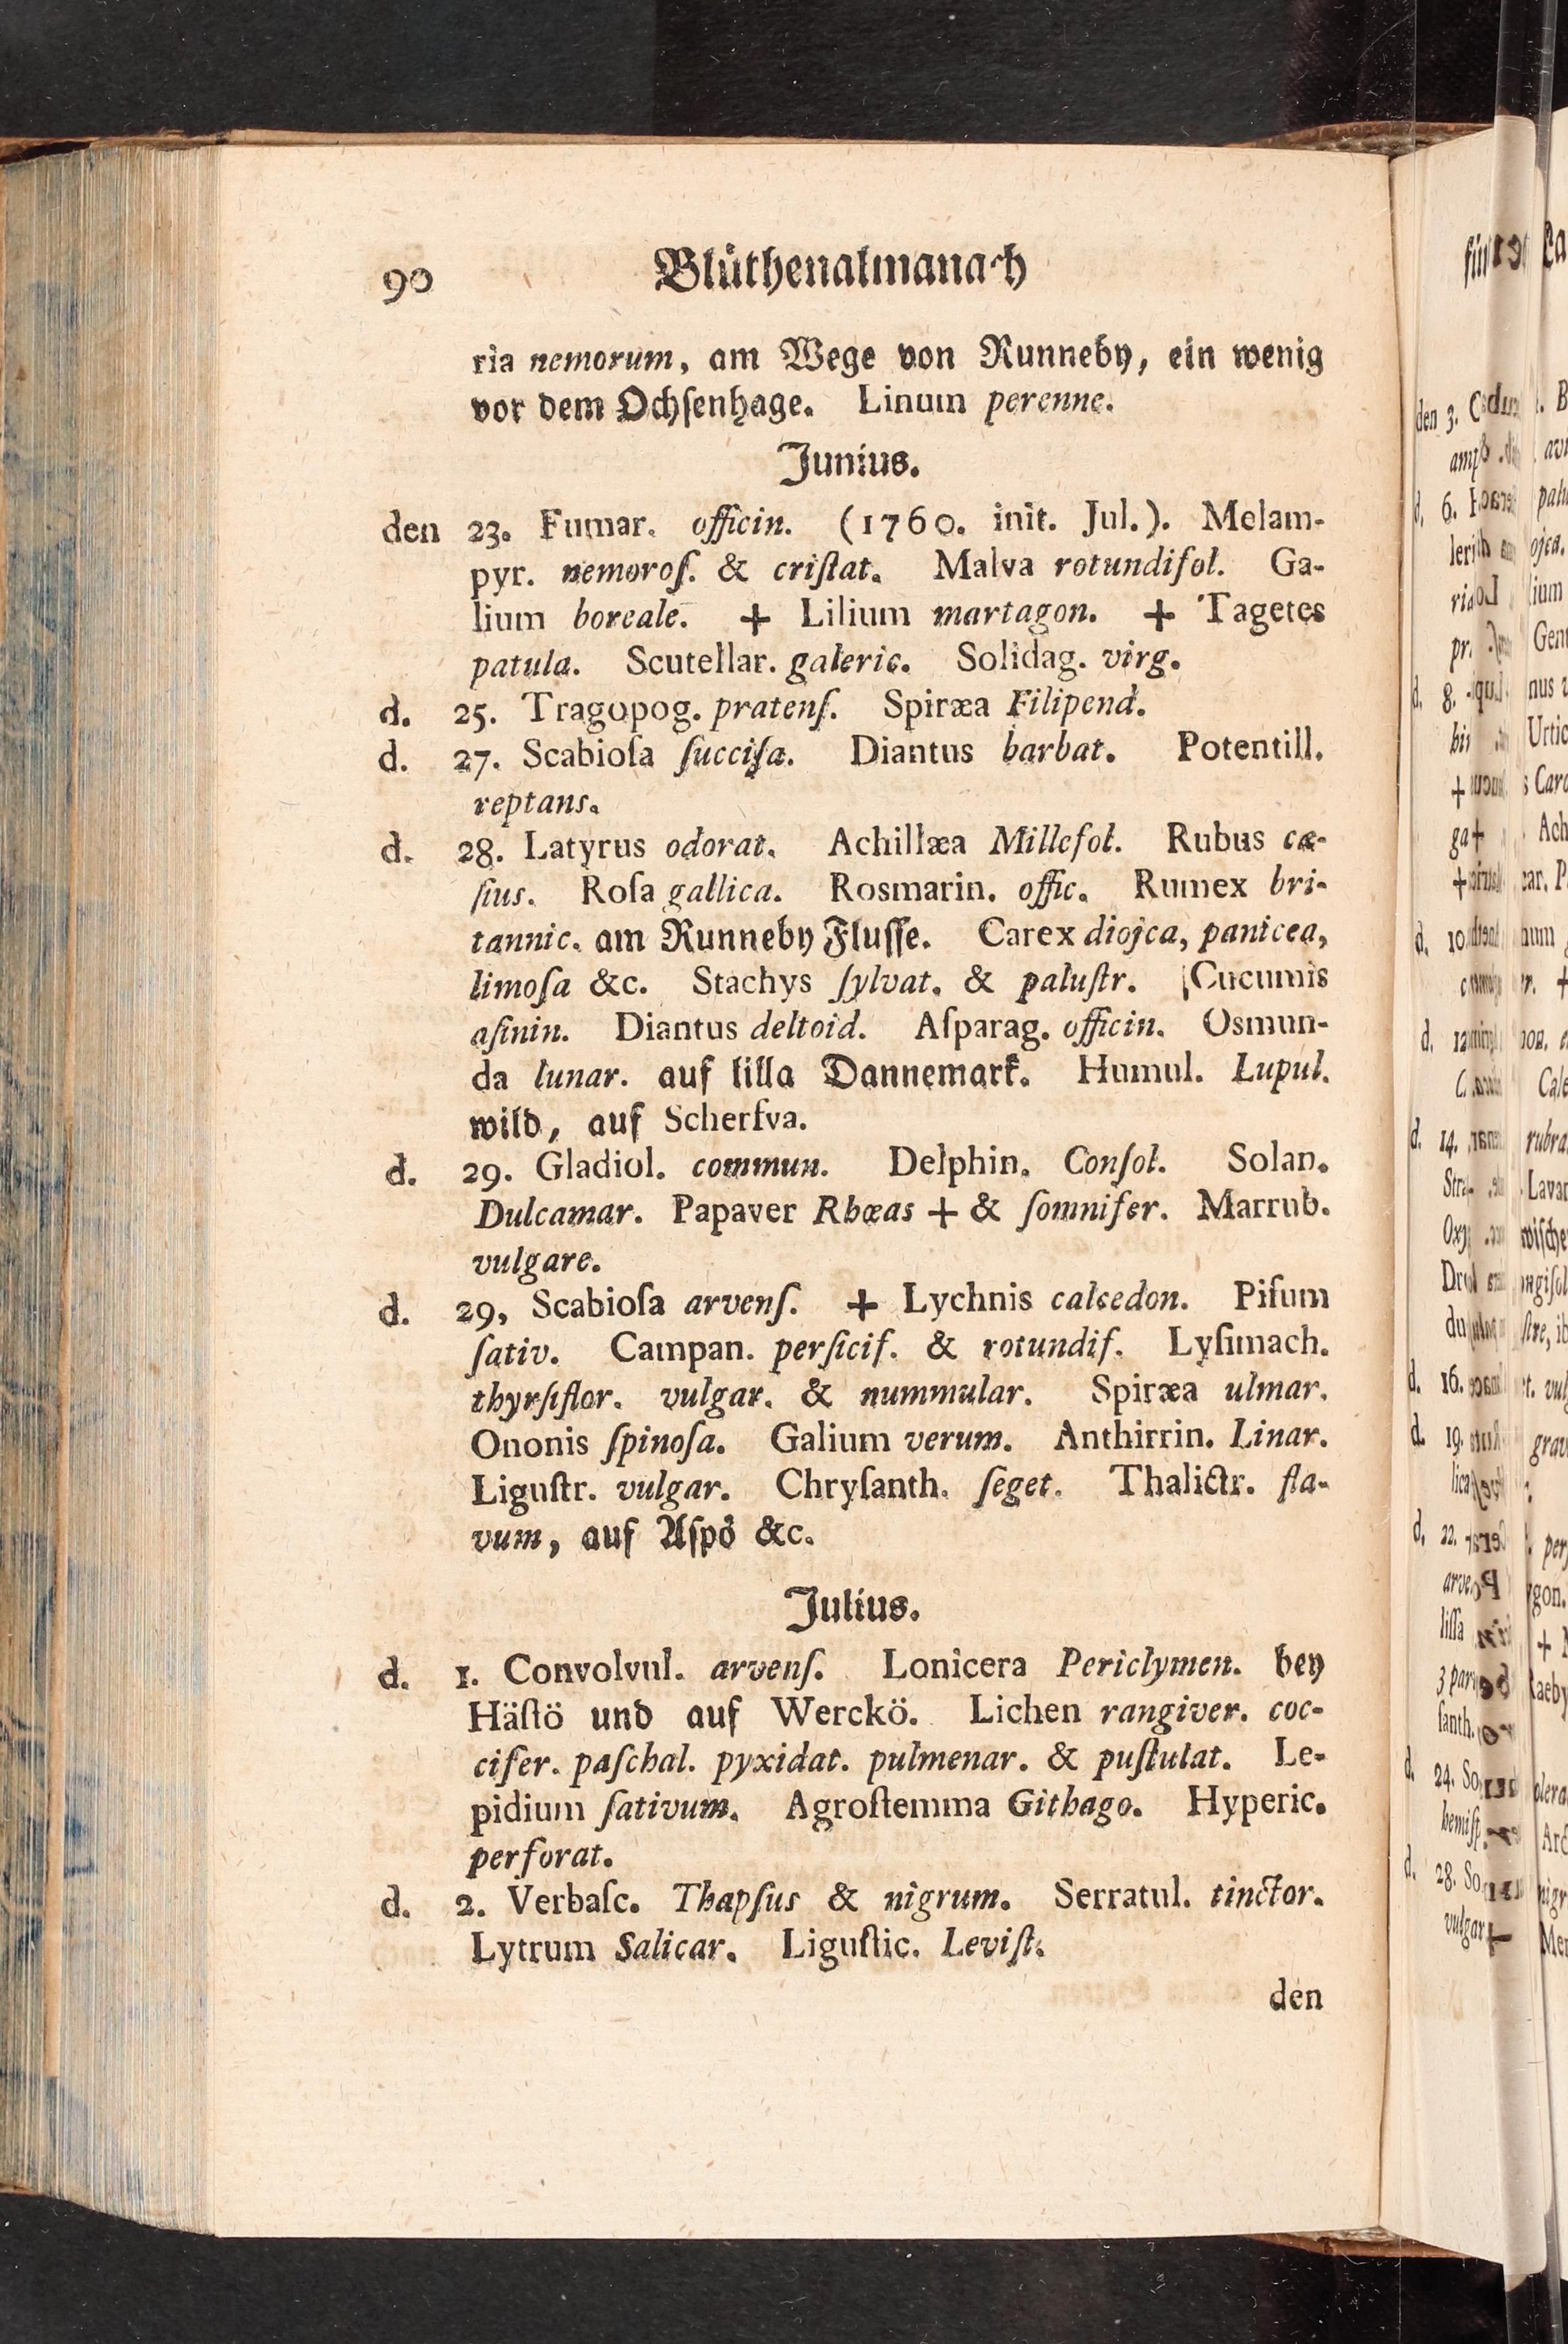 90 Blüthenalmanach
ria nemorum, am Wege von Runneby, ein wenig
vor dem Ochſenhage. Linum perenne.
Junius.
den 23. Fumar. officin. (1760. init. Jul.). Melam-
pyr. nemoroſ. & criſtat. Malva rotundifol. Ga-
lium boreale. + Lilium martagon. + Tagetes
patula. Scutellar. galeric. Solidag. virg.
d. 25. Tragopog. pratenſ. Spiræa Filipend.
d. 27. Scabioſa ſucciſa. Diantus barbat. Potentill.
reptans.
d. 28. Latyrus odorat. Achillæa Millefol. Rubus cæ-
ſius. Roſa gallica. Rosmarin. offic. Rumex bri-
tannic. am Runneby Fluſſe. Carex diojca, panicea,
limoſa &c. Stachys ſylvat. & paluſtr. Cucumis
aſinin. Diantus deltoid. Aſparag. officin. Osmun-
da lunar. auf lilla Dannemark. Humul. Lupul.
wild, auf Scherfva.
d. 29. Gladiol. commun. Delphin. Conſol. Solan.
Dulcamar. Papaver Rhœas + & ſomnifer. Marrub.
vulgare.
d. 29, Scabioſa arvenſ. + Lychnis calcedon. Piſum
ſativ. Campan. perſicif. & rotundif. Lyſimach.
thyrſiflor. vulgar. & nummular. Spiræa ulmar.
Ononis ſpinoſa. Galium verum. Anthirrin. Linar.
Liguſtr. vulgar. Chryſanth. ſeget. Thalictr. fla-
vum, auf Aſpö &c.
Julius.
d. 1. Convolvul. arvenſ. Lonicera Periclymen. bey
Häſtö und auf Werckö. Lichen rangiver. coc-
cifer. paſchal. pyxidat. pulmenar. & puſtulat. Le-
pidium ſativum. Agroſtemma Githago. Hyperic.
perforat.
d. 2. Verbaſc. Thapſus & nigrum. Serratul. tinctor.
Lytrum Salicar. Liguſtic. Leviſt.
den